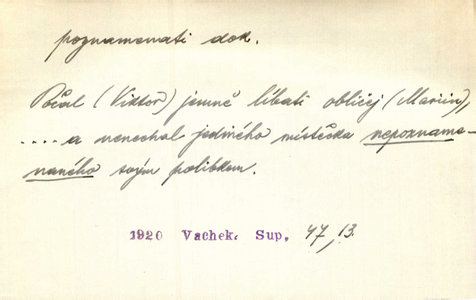 poznamenati dok.
Počal (Viktor) jemně líbati obličej (Mariin),
.... a nenechal jediného místečka nepozname-
naného svým polibkem.
1920 Vachek. Sup. 47, 13.